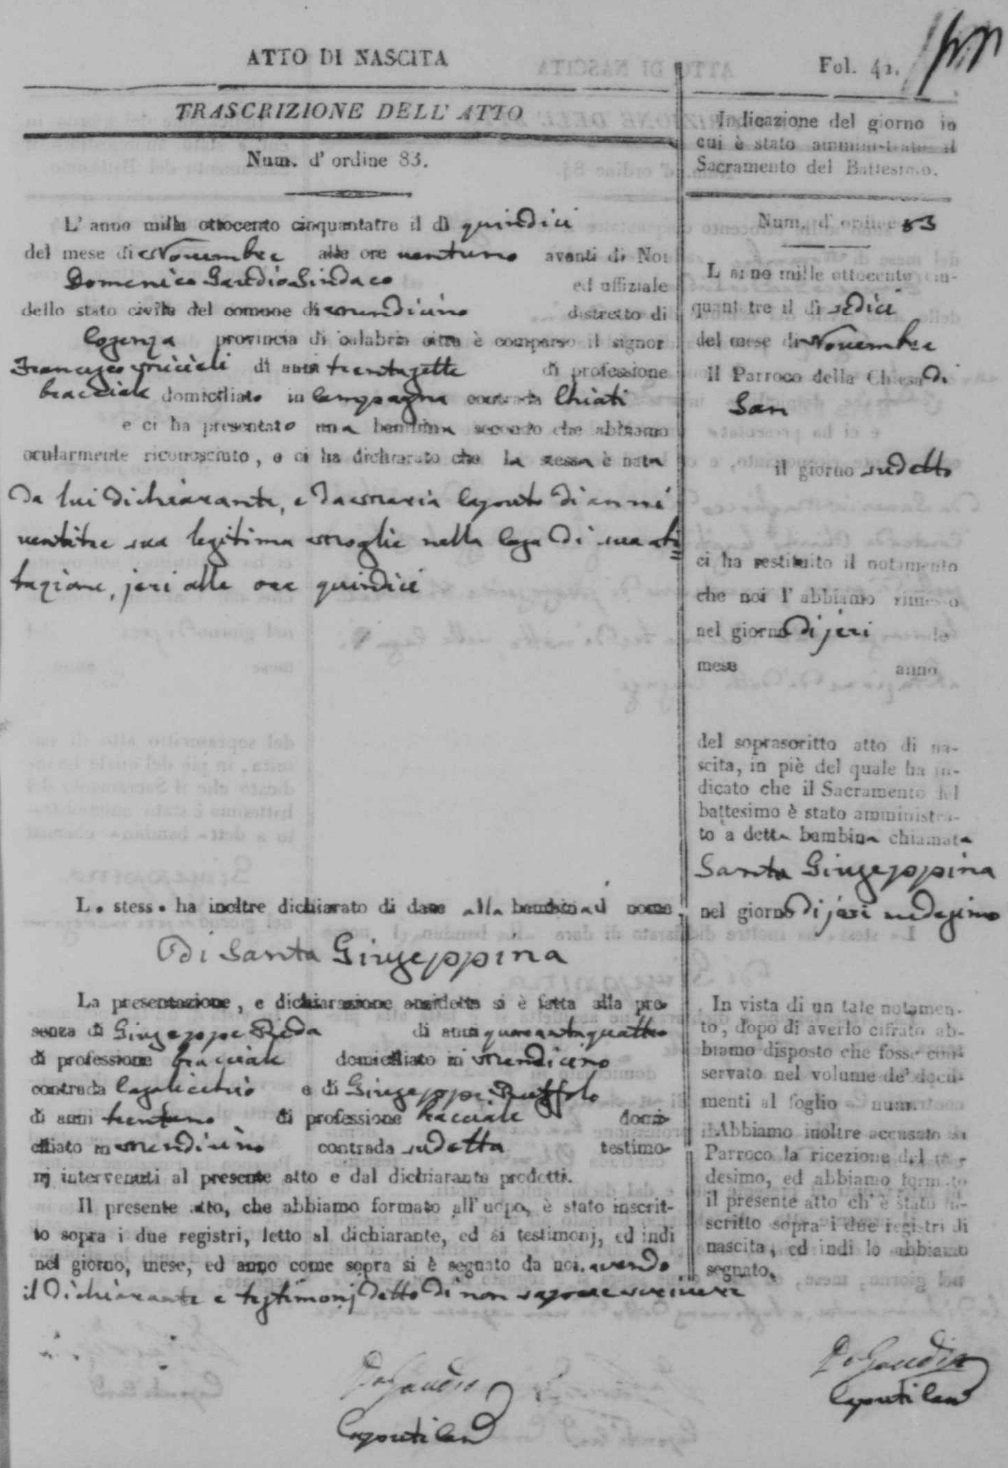 ATTO DI NASCITA
Fol. 42.
TRASCRIZIONE DELL' ATTO
Num. d' ordine 83.
L' anno mille ottocento cinquantatre il dì quindici
del mese di Novembre alle ore ventuno avanti di Noi
Domenico Gaudio Sindaco ed uffiziale
dello stato civile del comune di Mendicino distretto di
Cosenza provincia di calabria citra è comparso il signor
Francesco Micieli di anni trentasette di professione
bracciale domiciliato in Campagna contrada Chiati
e ci ha presentato una bambina secondo che abbiamo
ocularmente riconosciuto, e ci ha dichiarato che la stessa è nata
da lui dichiarante, e da Maria Caputo di anni
ventitre sua legitima moglie nella casa di sua abi=
tazione, jeri alle ore quindici
L. stess. ha inoltre dichiarato di dare alla bambina il nome
di Santa Giuseppina
La presentazione, e dichiarazione anzidetta si è fatta alla pre-
senza di Giuseppe Reda di anni quarantaquattro
di professione bracciale domiciliato in Mendicino
contrada Casalicchio e di Giuseppe Ruffolo
di anni trentuno di professione bracciale domi-
ciliato in Mendicino contrada sudetta testimo-
nj intervenuti al presente atto e dal dichiarante prodotti.
Il presente atto, che abbiamo formato all' uopo, è stato inscrit-
to sopra i due registri, letto al dichiarante, ed ai testimonj, ed indi
nel giorno, mese, ed anno come sopra si è segnato da noi. avendo
il dichiarante e testimonj detto di non sapere scrivere
Do Gaudio
Caputi Can
Indicazione del giorno in
cui è stato amministrato il
Sacramento del Battesimo.
Num. d' ordine 83
L anno mille ottocento cin-
quantatre il dì sedici
del mese di Novembre
il Parroco della Chiesa di
San
il giorno sudetto
ci ha restituito il notamento
che noi l' abbiamo rimesso
nel giorno di jeri
mese anno
del soprascritto atto di na-
scita, in piè del quale ha in-
dicato che il Sacramento del
battesimo è stato amministra-
to a detta bambina chiamata
Santa Giuseppina
nel giorno di jeri medesimo
In vista di un tale notamen-
to, dopo di averlo cifrato ab-
biamo disposto che fosse con-
servato nel volume de' docu-
menti al foglio num.
Abbiamo inoltre accusato al
Parroco la ricezione del me-
desimo, ed abbiamo formato
il presente atto ch' è stato in-
scritto sopra i due registri di
nascita, ed indi lo abbiamo
segnato.
Do Gaudio
Caputi Can